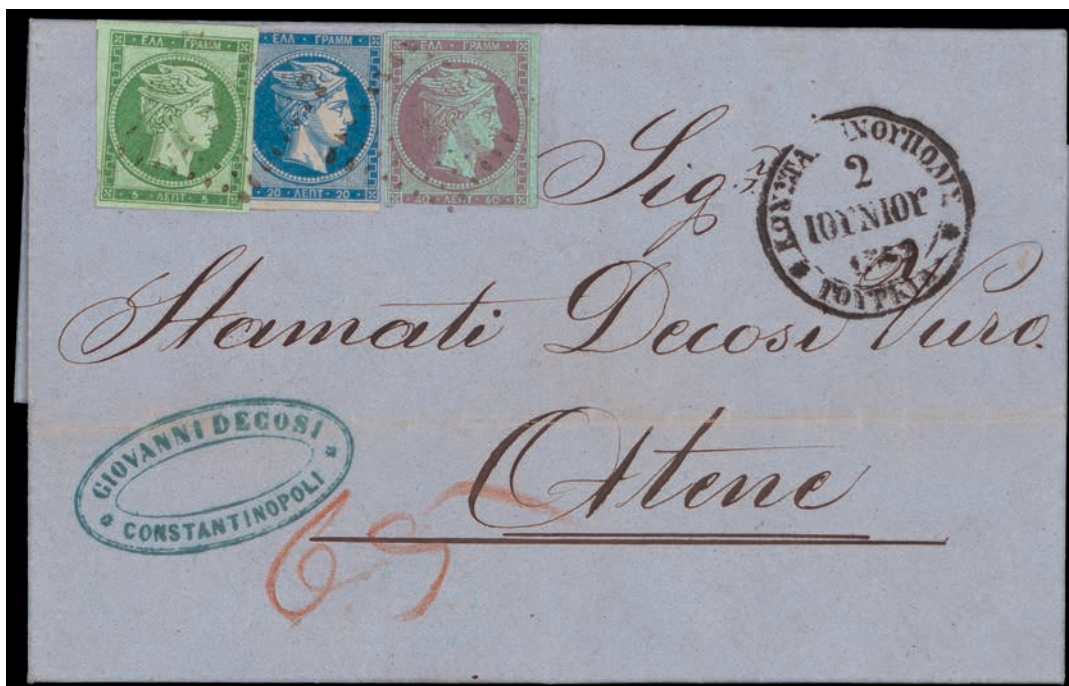 ΕΛΛ · ΓΡΑΜΜ
5 · ΛΕΠΤ · 5
ΕΛΛ · ΓΡΑΜΜ
20 · ΛΕΠΤ · 20
ΕΛΛ · ΓΡΑΜΜ
40 · ΛΕΠΤ · 40
2
ΙΟΥΝΙΟΥ
ΤΟΥΡΚΙΑ
Sig.
Stamati Decosi Vuro.
Atene
GIOVANNI DECOSI
CONSTANTINOPOLI
65